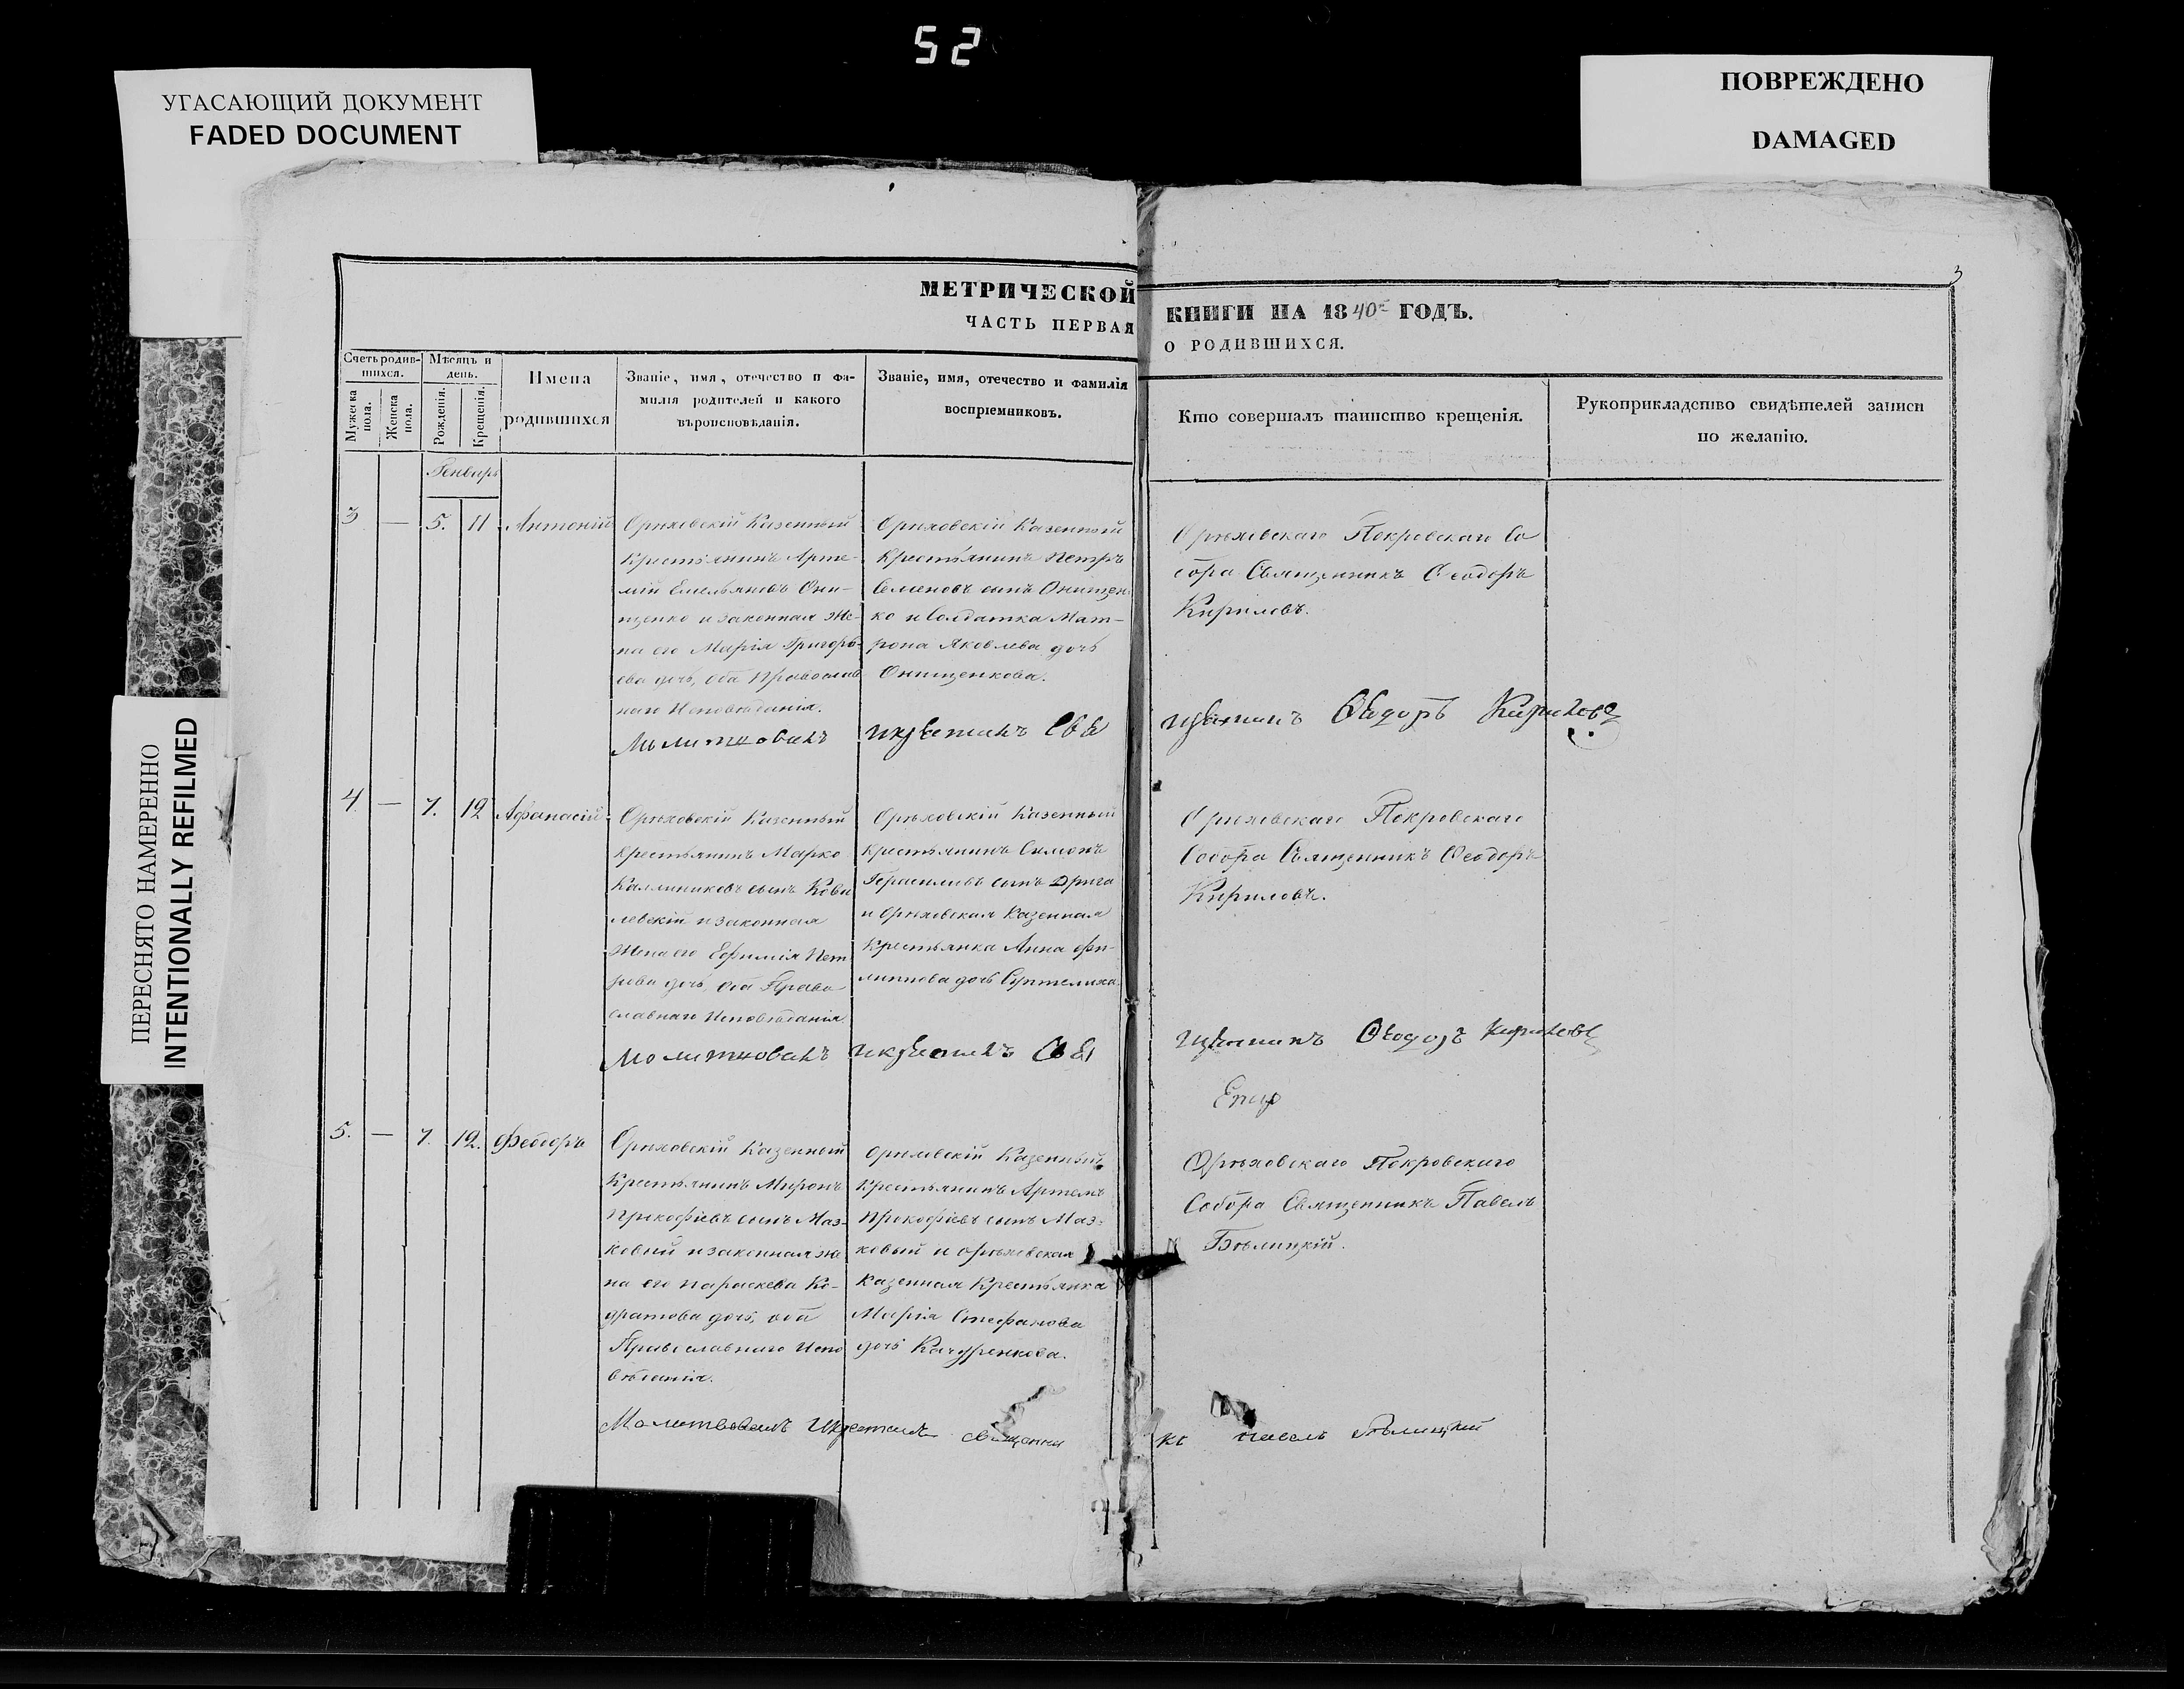 52
УГАСАЮЩИЙ ДОКУМЕНТ
FADED DOCUMENT
ПОВРЕЖДЕНО
DAMAGED
ПЕРЕСНЯТО НАМЕРЕННО
INTENTIONALLY REFILMED
3
МЕТРИЧЕСКОЙ КНИГИ НА 1840 ГОДЪ.
ЧАСТЬ ПЕРВАЯ О РОДИВШИХСЯ.
Счетъ родив-
шихся.
Мужеска
пола.
Женска
пола.
Мѣсяцъ и
день.
Рожденія.
Крещенія.
Имена
родившихся
Званіе, имя, отечество и фа-
милія родителей и какого
вѣроисповѣданія.
Званіе, имя, отечество и фамилія
воспріемниковъ.
Кто совершалъ таинство крещенія.
Рукоприкладство свидѣтелей записи
по желанію.
Генварь
3 — 5. 11 Антоній
Орѣховскій Казенный
Крестьянинъ Арте-
мій Емельяновъ Они-
щенко и законная же-
на его Марія Григорь-
ева дочь, оба Православ
наго Исповѣданія.
Орѣховскій Казенный
Крестьянинъ Петръ
Семеновъ сынъ Онищен
ко и Солдатка Мат-
рона Яковлева дочь
Онищенкова.
Орѣховскаго Покровскаго Со
бора Священникъ Феодоръ
Кириловъ.
Молитвовалъ икрестилъ Свя щенникъ Феодоръ Кириловъ
4. — 7. 12 Афанасій
Орѣховскій Казенный
Крестьянинъ Марко
Каллиниковъ сынъ Кова
левскій и законная
Жена его Евфимія Пет
рова дочь, оба Право
славнаго Исповѣданія.
Орѣховскій Казенный
Крестьянинъ Симонъ
Герасимовъ сынъ Дрига
и Орѣховская Казенная
Крестьянка Анна Фи-
липпова дочь
Орѣховскаго Покровскаго
Собора Священникъ Феодоръ
Кириловъ.
Молитвовалъ икрестилъ Свя щенникъ Феодоръ Кириловъ
5. — 7. 12. Феодоръ
Орѣховскій Казенный
Крестьянинъ Миронъ
Прокофіевъ сынъ Маз-
ковый и законная же
на его Параскева Ко-
дратова дочь, оба
Православнаго Испо
вѣданія.
Орѣховскій Казенный
Крестьянинъ Артемъ
Прокофіевъ сынъ Маз-
ковый и Орѣховская
Казенная Крестьянка
Марія Стефанова
дочь Качуренкова.
Орѣховскаго Покровскаго
Собора Священникъ Павелъ
Бѣлицкій.
Молитвовалъ Икрестилъ священни къ Павелъ Бѣлицкій